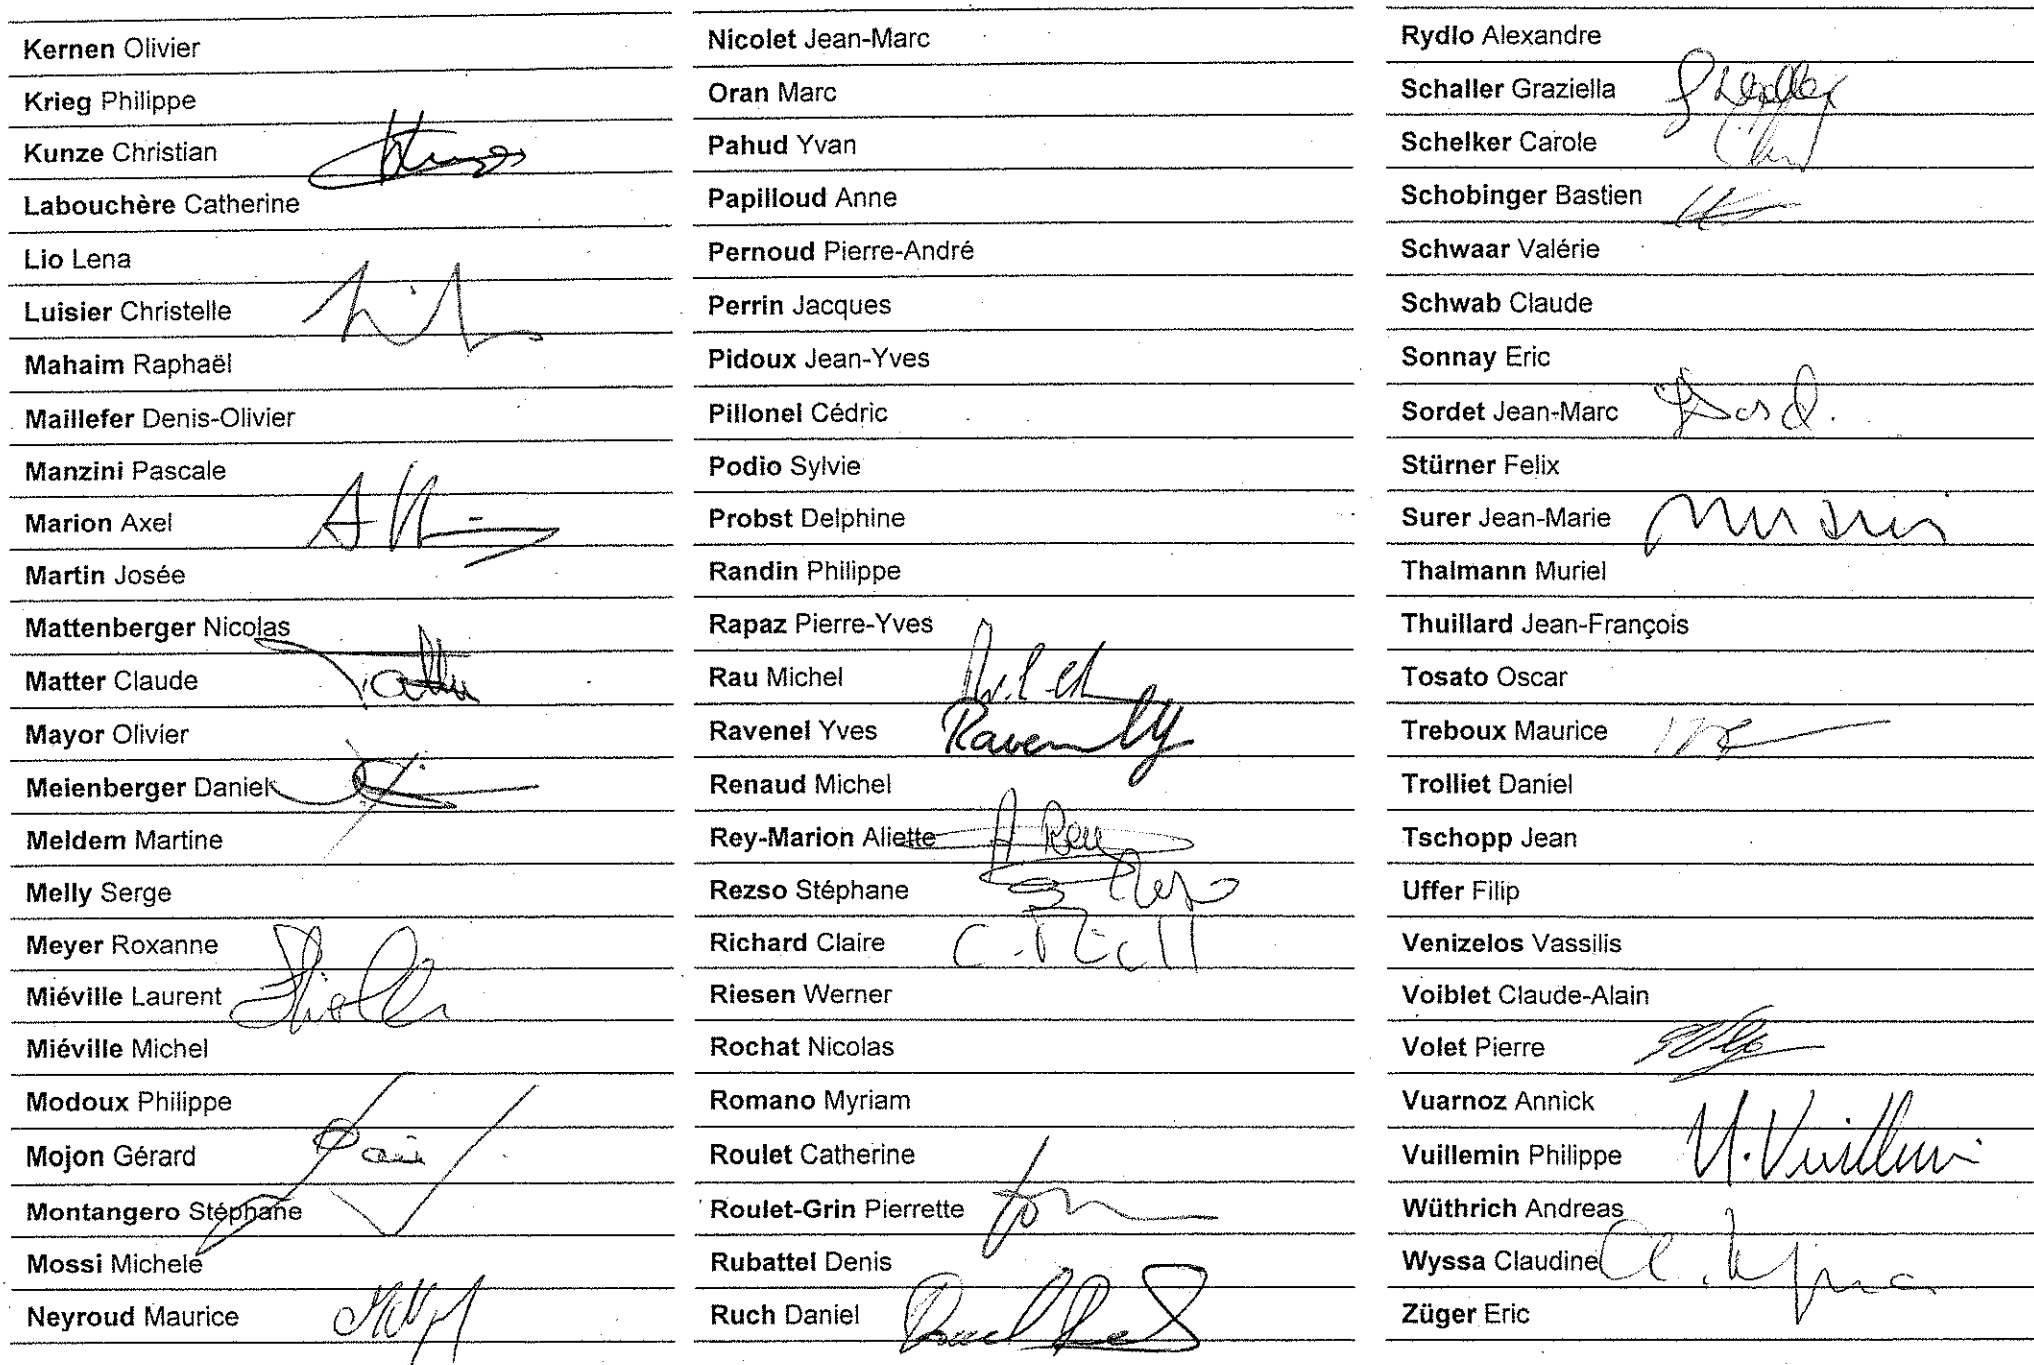 Kernen Olivier
Krieg Philippe
Kunze Christian
Labouchère Catherine
Lio Lena
Luisier Christelle
Mahaim Raphaël
Maillefer Denis-Olivier
Manzini Pascale
Marion Axel
Martin Josée
Mattenberger Nicolas
Matter Claude
Mayor Olivier
Meienberger Daniel
Meldem Martine
Melly Serge
Meyer Roxanne
Miéville Laurent
Miéville Michel
Modoux Philippe
Mojon Gérard
Montangero Stéphane
Mossi Michele
Neyroud Maurice
Nicolet Jean-Marc
Oran Marc
Pahud Yvan
Papilloud Anne
Pernoud Pierre-André
Perrin Jacques
Pidoux Jean-Yves
Pillonel Cédric
Podio Sylvie
Probst Delphine
Randin Philippe
Rapaz Pierre-Yves
Rau Michel
Ravenel Yves Ravenel
Renaud Michel
Rey-Marion Aliette A Rey
Rezso Stéphane
Richard Claire
Riesen Werner
Rochat Nicolas
Romano Myriam
Roulet Catherine
Roulet-Grin Pierrette
Rubattel Denis
Ruch Daniel
Rydlo Alexandre
Schaller Graziella
Schelker Carole
Schobinger Bastien
Schwaar Valérie
Schwab Claude
Sonnay Eric
Sordet Jean-Marc
Stürner Felix
Surer Jean-Marie
Thalmann Muriel
Thuillard Jean-François
Tosato Oscar
Treboux Maurice
Trolliet Daniel
Tschopp Jean
Uffer Filip
Venizelos Vassilis
Voiblet Claude-Alain
Volet Pierre
Vuarnoz Annick
Vuillemin Philippe
Wüthrich Andreas
Wyssa Claudine
Züger Eric